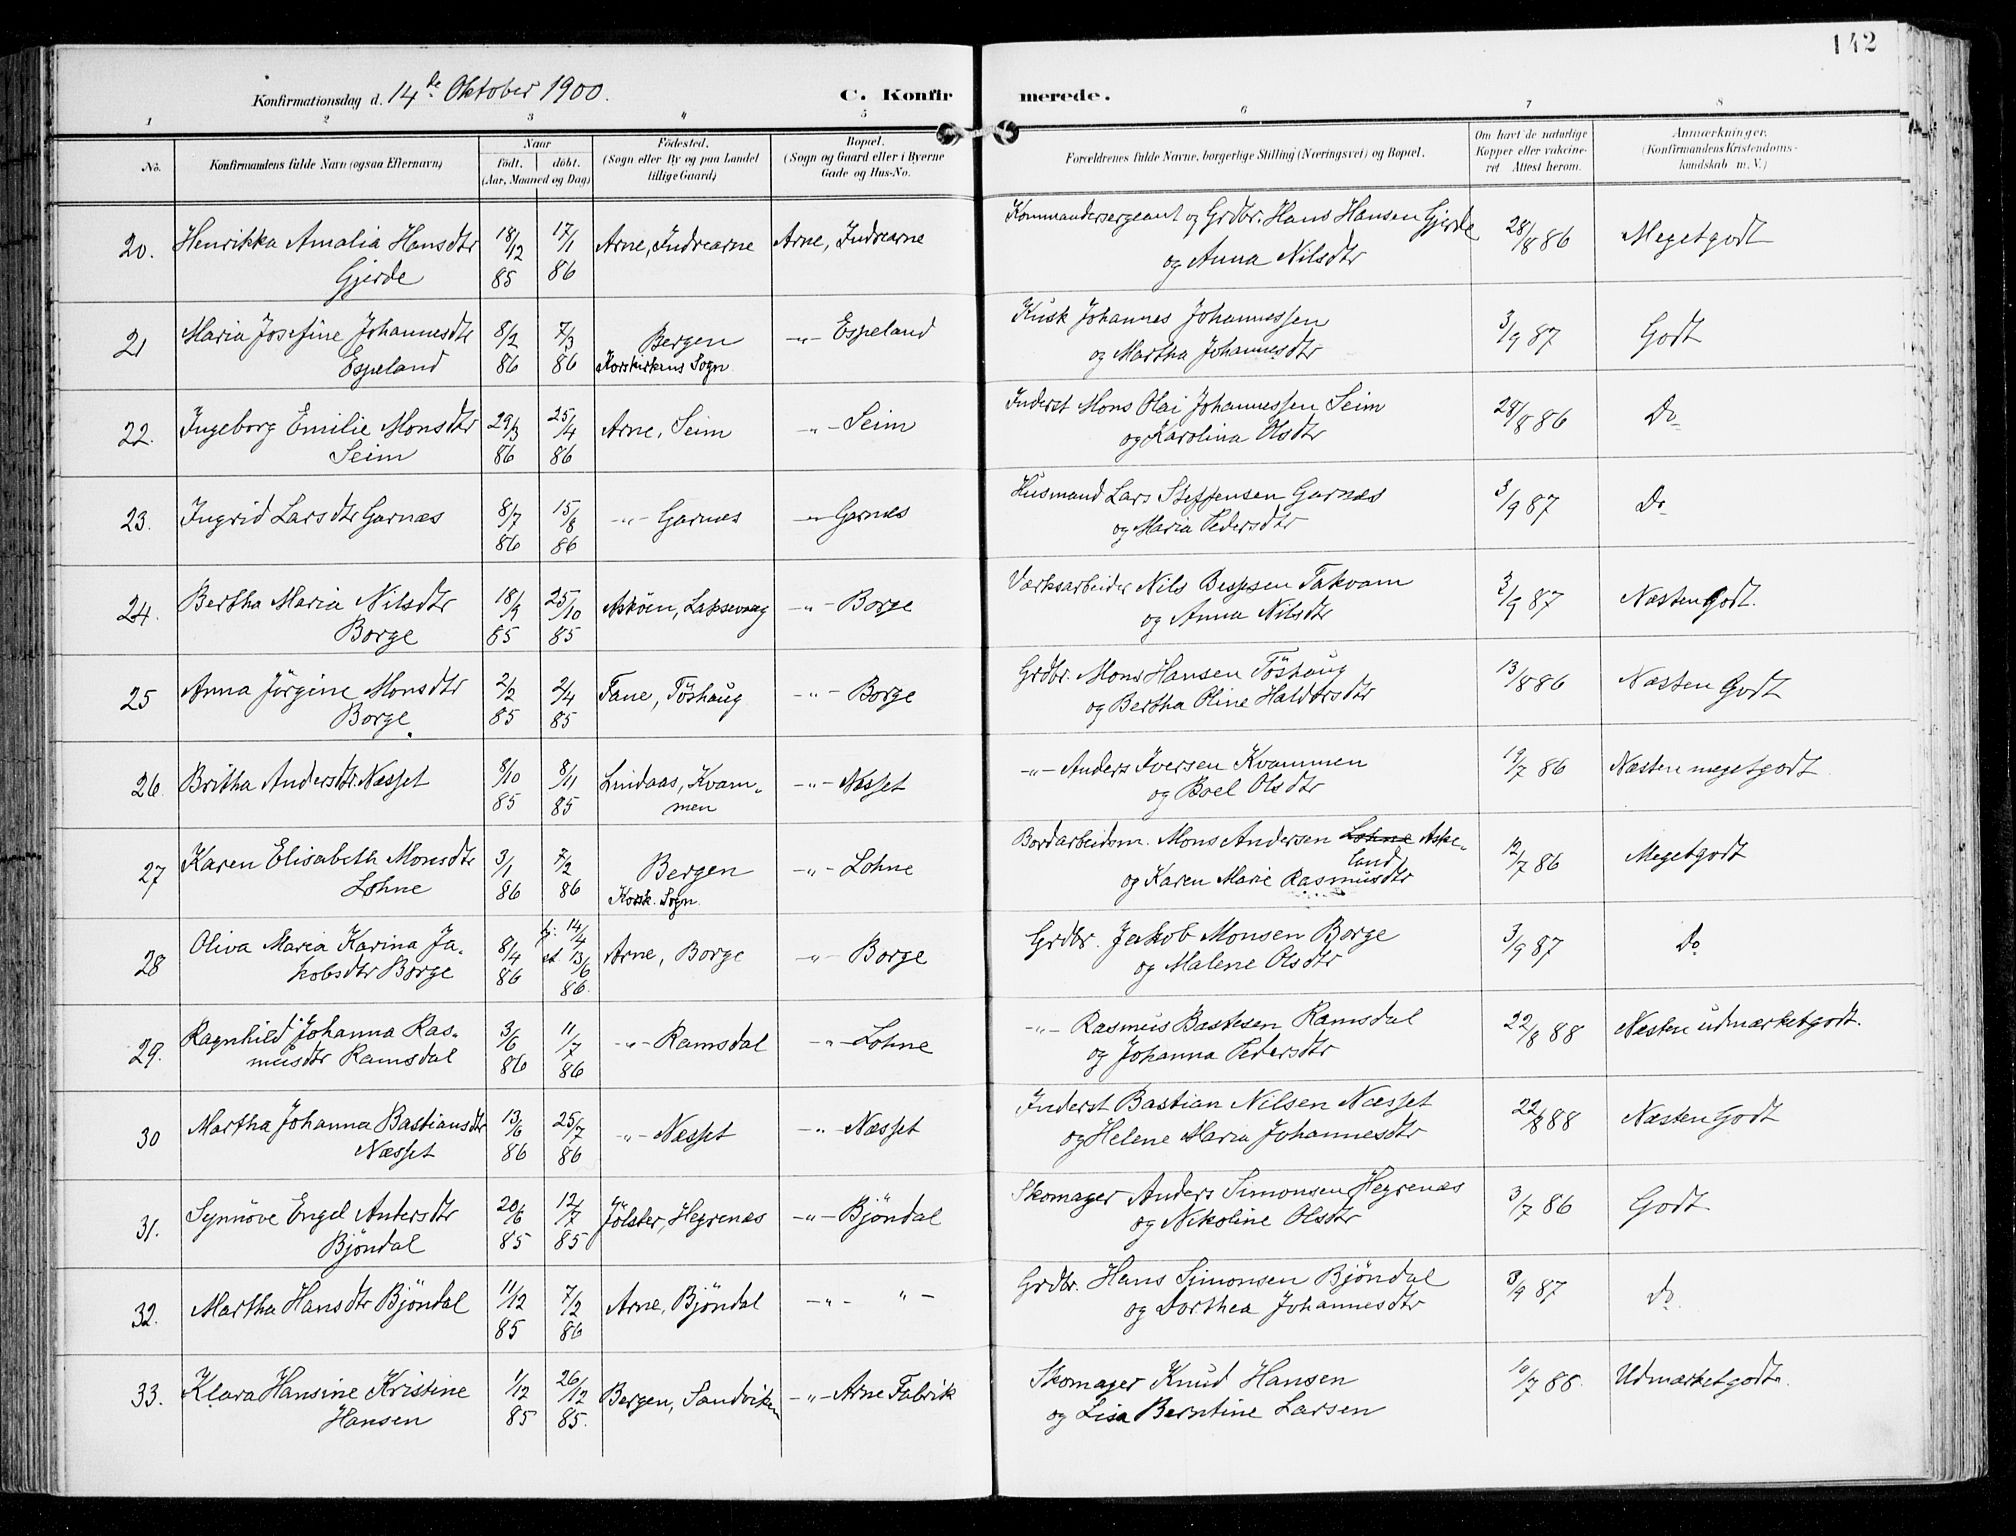 142
Konfirmationsdag d. 14de Oktober 1900.
C. Konfirmerede.
1 2 3 4 5 6 7 8
No.
Konfirmandens fulde Navn (ogsaa Efternavn)
Naar
födt. döbt.
(Aar, Maaned og Dag)
Födested.
(Sogn eller By og paa Landet
tillige Gaard)
Bopæl.
(Sogn og Gaard eller i Byerne
Gade og Hus-No.
Forældrenes fulde Navne, borgerlige Stilling (Næringsvei) og Bopæl.
Om havt de naturlige
Kopper eller vakcine-
ret Attest herom.
Anmærkninger.
(Konfirmandens Kristendoms-
kundskab m. V.)
20. Henrikka Amalia Hansdtr 18/12 17/1 Arne, Indrearne Arne, Indrearne Kommandersergeant og Grdbr. Hans Hansen Gjerde 28/8 86 Megetgodt
Gjerde 85 86 og Anna Nilsdtr
21 Maria Josefine Johannesdtr 8/2 7/3 Bergen -"- Espeland Kusk Johannes Johannessen 3/9 87 Godt
Espeland 86 86 Korskirkens Sogn og Martha Johannesdtr
22. Ingeborg Emilie Monsdtr 29/3 25/4 Arne, Seim -"- Seim Inderst Mons Olai Johannessen Seim 28/8 86 Do
Seim 86 86 og Karolina Olsdtr
23. Ingrid Larsdtr Garnæs 8/7 15/8 -"- Garnæs -"- Garnæs Husmand Lars Steffensen Garnæs 3/9 87 Do
86 86 og Maria Pedersdtr
24. Bertha Maria Nilsdtr 18/9 25/10 Askøen, Laksevaag -"- Borge Værksarbeider Nils Bessesen Takvam 3/9 87 Næsten Godt.
Borge 85 85 og Anna Nilsdtr
25 Anna Jörgine Monsdtr 2/2 2/4 Fane, Töshaug -"- Borge Grdbr. Mons Hansen Töshaug 13/8 86 Næsten Godt
Borge. 85 85 og Bertha Oline Haldorsdtr
26. Britha Andersdtr. Næsset 8/10 8/11 Lindaas, Kvam- -"- Næsset -"- Anders Iversen Kvammen 19/7 86 Næsten megetgodt.
85 85 men og Boel Olsdtr
27 Karen Elisabeth Monsdtr 3/1 7/2 Bergen -"- Lohne Bordarbeidsm. Mons Andersen Lohne Aske- 12/7 86 Megetgodt
land
Lohne 86 86 Korsk. Sogn. og Karen Marie Rasmusdtr
28 Oliva Maria Karina Ja- 8/4 hj: 14/4 Arne, Borge -"- Borge Grdbr. Jakob Monsen Borge 3/9 87 Do
kobsdtr Borge 86 st 13/6 86. og Malene Olsdtr
29. Ragnhild Johanna Ras- 3/6 11/7 -"- Ramsdal -"- Lohne -"- Rasmus Bastesen Ramsdal 22/8 88 Næsten udmærketgodt.
musdtr Ramsdal 86 86 og Johanna Pedersdtr
30 Martha Johanna Bastiansdtr 13/6 25/7 -"- Næsset -"- Næsset Inderst Bastian Nilsen Næsset 22/8 88 Næsten Godt
Næsset 86 86 og Helene Maria Johannesdtr
31. Synnöve Engel Andersdtr 20/6 12/7 Jölster, Hegrenæs -"- Bjöndal Skomager Anders Simonsen Hegrenæs 3/7 86 Godt
Bjöndal 85 85 og Nikoline Olsdtr
32. Martha Hansdtr Bjöndal 11/12 7/2 Arne, Bjöndal -"- "- Grdbr. Hans Simonsen Bjöndal 3/9 87 Do.
85 86 og Dorthea Johannesdtr
33. Klara Hansine Kristine 1/12 26/12 Bergen, Sandviken -"- Arne Fabrik Skomager Knud Hansen 10/7 88. Udmærketgodt.
Hansen 85 85. og Lisa Berntine Larsen